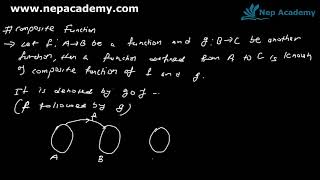 www.nepacademy.com
Nep Academy
# Composite Function
→ Let f: A→B be a function and g: B→C be another
function, then a function defined from A to C is known
of composite function of f and g.
It is denoted by gof -
(f followed by g)
f
A B